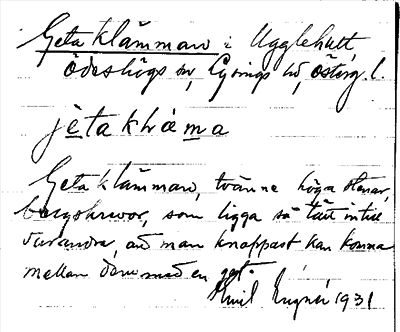 Getaklämman i Ugglehult
Ödeshögs sn, Lysings hd, Österg. l.
jètaklräma
Getaklämman, tvänne höga stenar,
bergskrevor, som ligga så tätt intill
varandra, att man knappast kan komma
mellan dem med en get.
Emil 1931